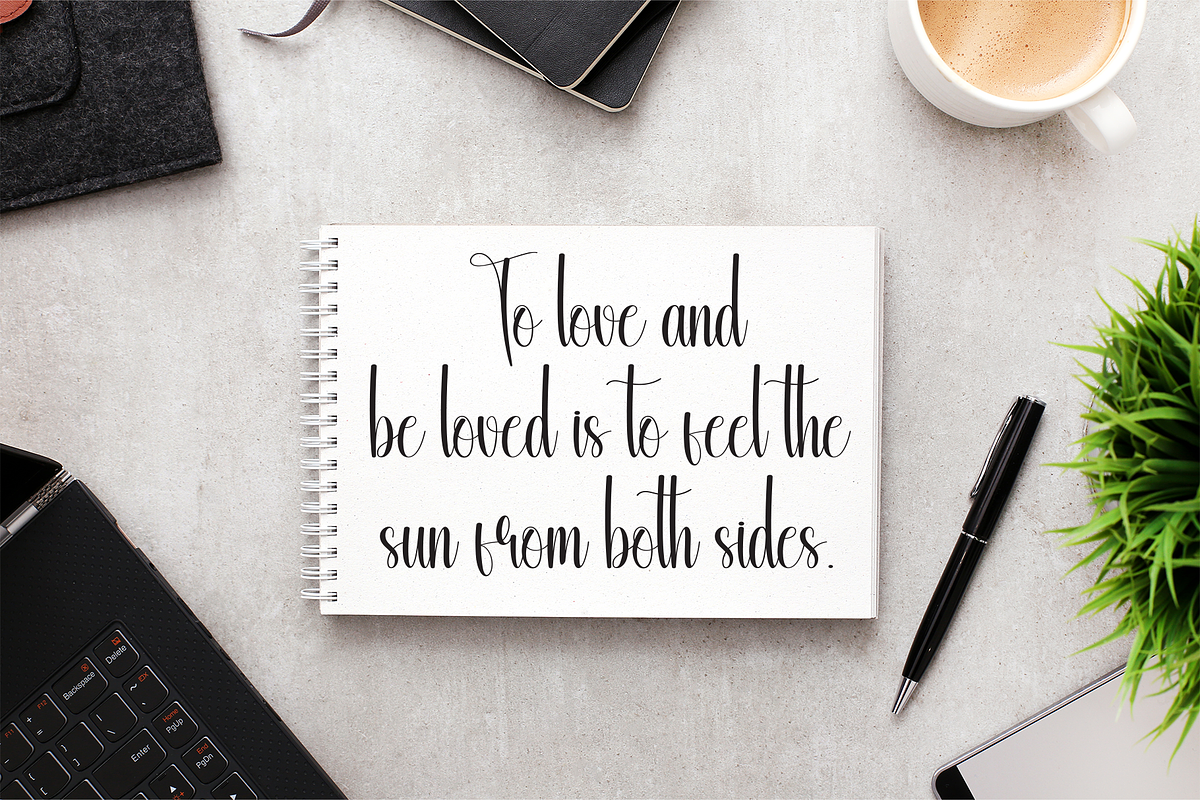 To love and
be loved is to feel the
sun from both sides.
Delete
Backspace
F12
F11
+
=
~
}
]
{
[
|
\
Enter
Home
PgUp
End
PgDn